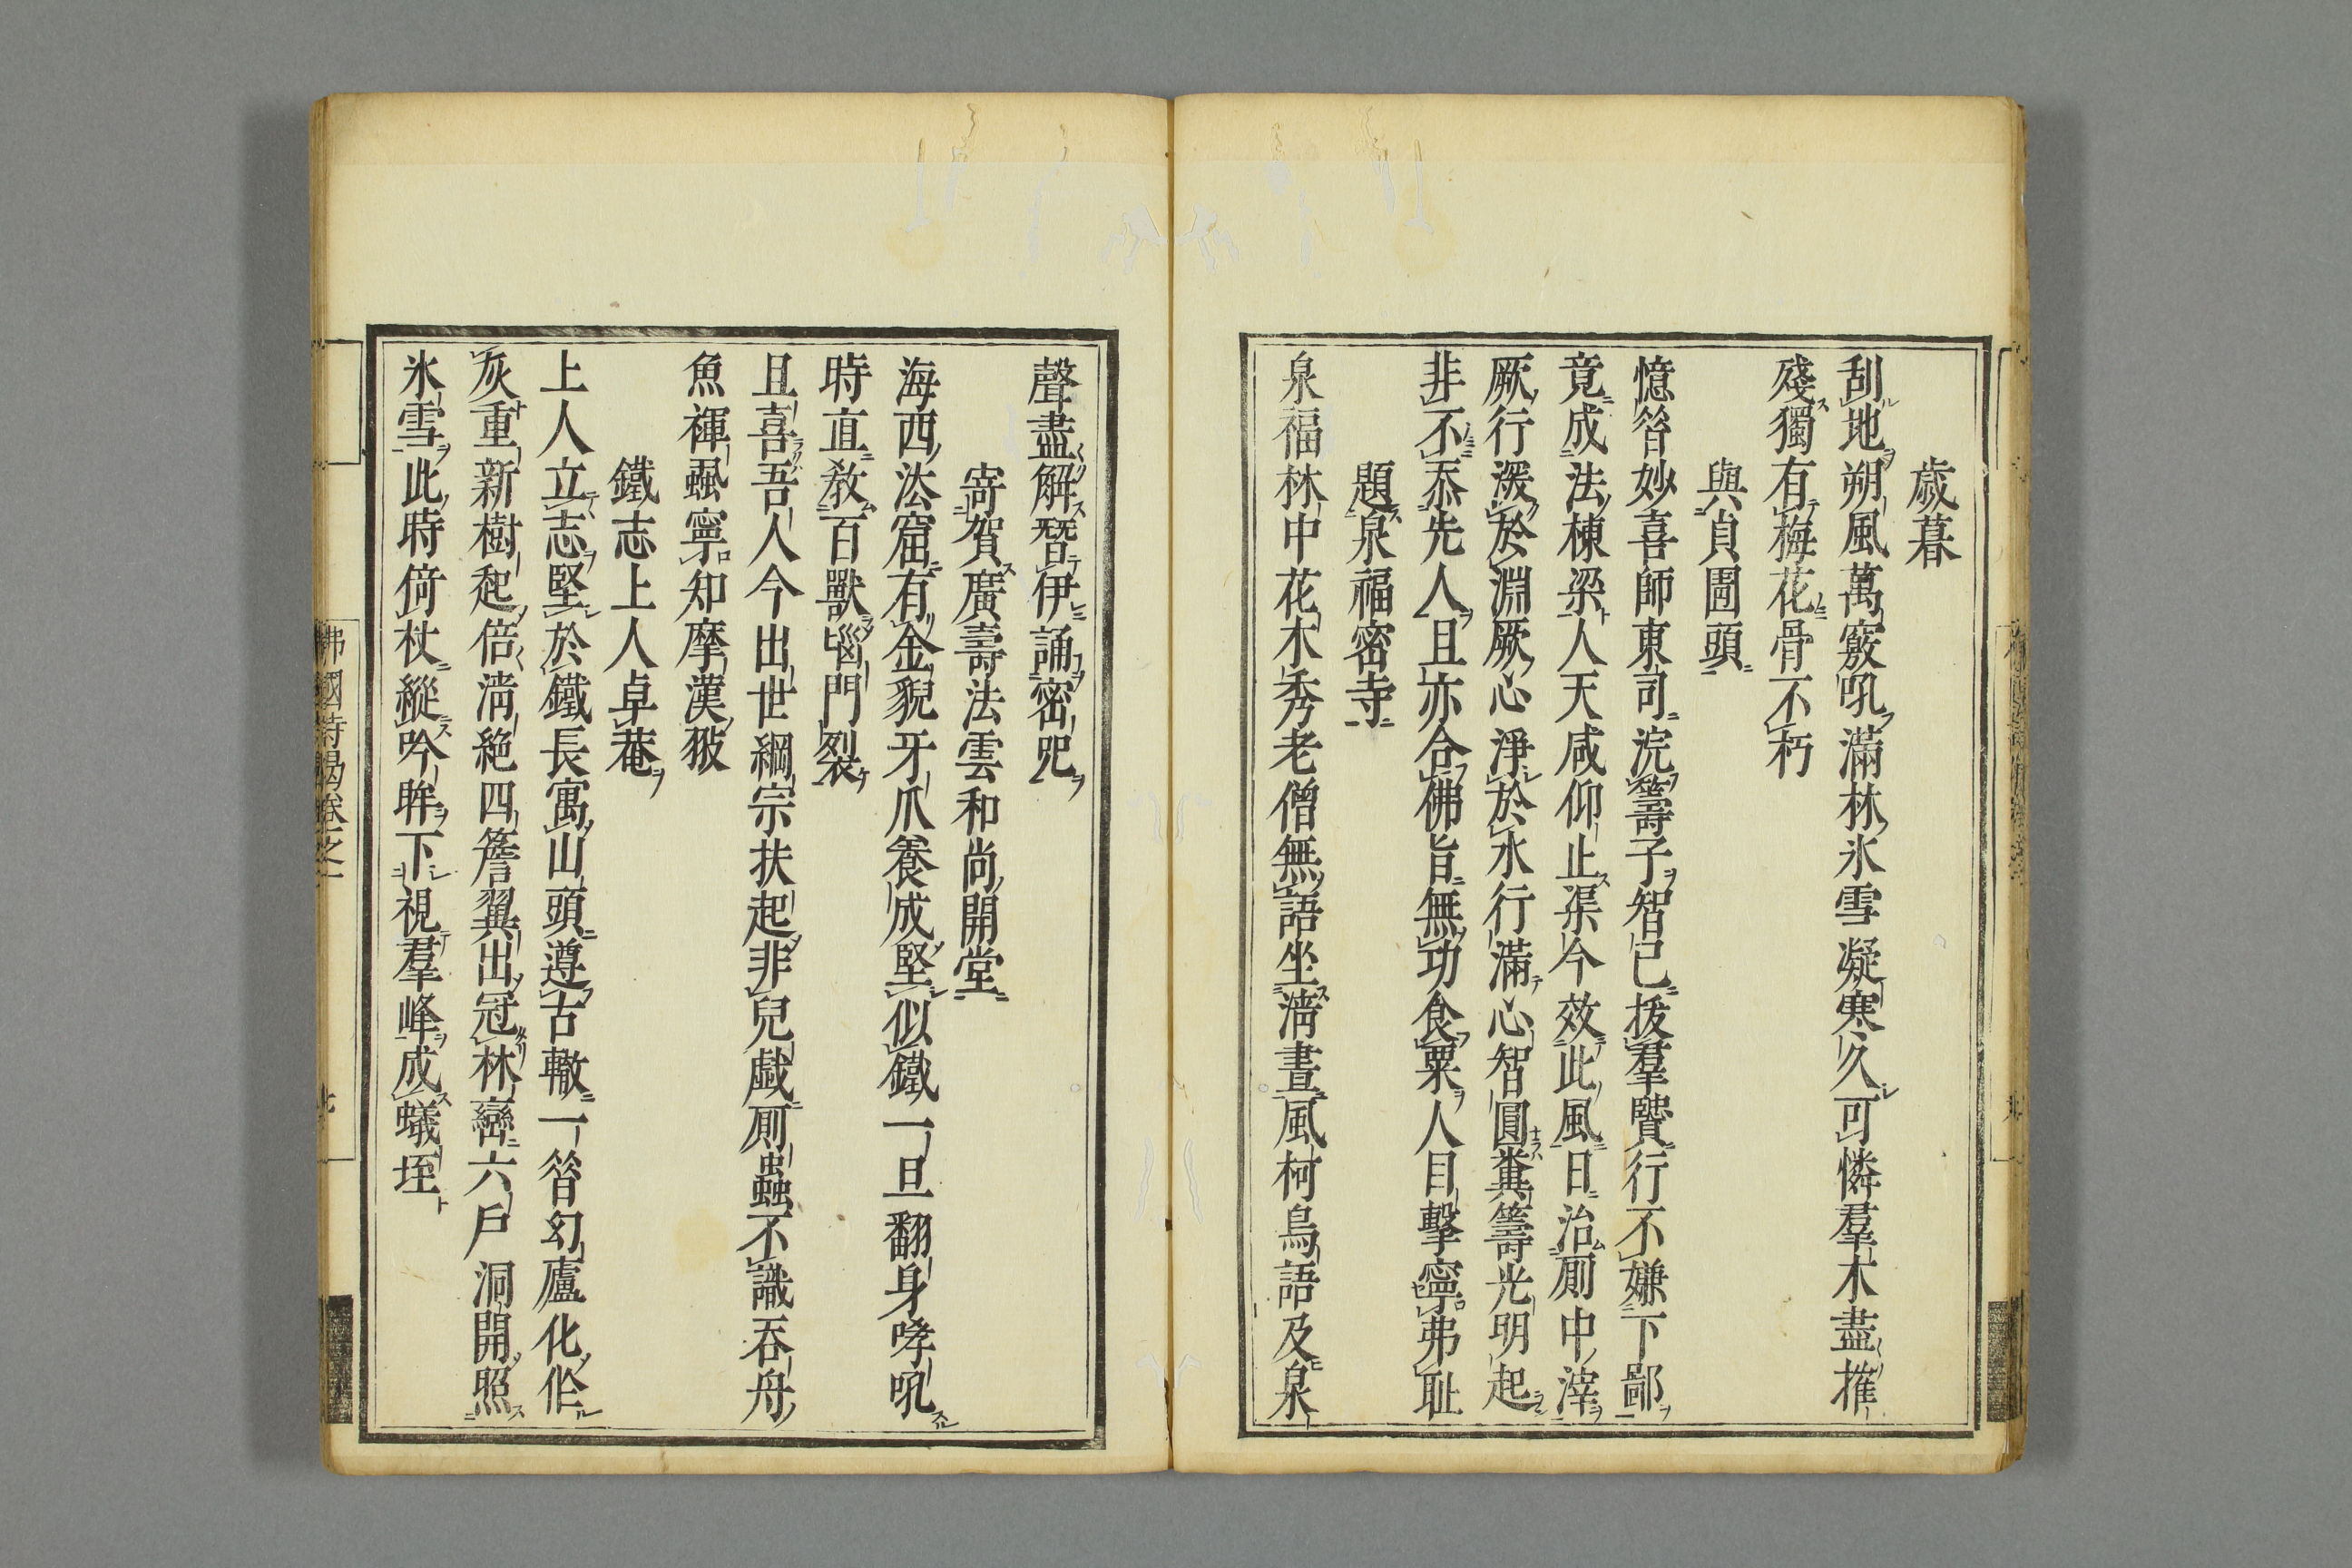 歳暮
刮地朔風萬竅吼滿林氷雪凝寒久可憐羣木盡摧
殘獨有梅花骨不朽
與貞圊頭
憶昝妙喜師東司浣籌子智已拔羣贒行不嫌下鄙
竟成法棟梁人天咸仰止渠今效此風日治厠中滓
厥行深於淵厥心淨於水行滿心智圓糞籌光明起
非不忝先人且亦合佛旨無功食粟人目擊寧弗耻
題泉福密寺
泉福林中花木秀老僧無語坐淸晝風柯鳥語及泉
聲盡解朁伊誦密呪
寄賀廣壽法雲和尚開堂
海西法窟有金貎牙爪養成堅似鐵一旦翻身哮吼
時直敎百獸惱門裂
且喜吾人今出世綱宗扶起非兒戯厠蟲不識吞舟
魚褌蝨寧知摩漢狓
鐵志上人卓菴
上人立志堅於鐵長寓山頭遵古轍一昝幻廬化作
灰重新樹起倍淸絶四簷翼出冠林巒六戶洞開照
氷雪此時倚杖縱吟眸下視羣峰成蟻垤
佛國詩偈卷之一